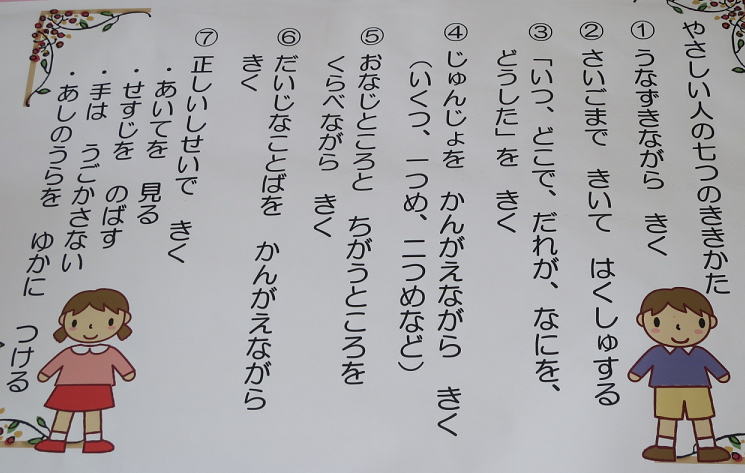 やさしい人の七つのききかた
① うなずきながら　きく
② さいごまで　きいて　はくしゅする
③ 「いつ、どこで、だれが、なにを、
どうした」を　きく
④ じゅんじょを　かんがえながら　きく
（いくつ、一つめ、二つめなど）
⑤ おなじところと　ちがうところを
くらべながら　きく
⑥ だいじなことばを　かんがえながら
きく
⑦ 正しいしせいで　きく
・あいてを　見る
・せすじを　のばす
・手は　うごかさない
・あしのうらを　ゆかに　つける